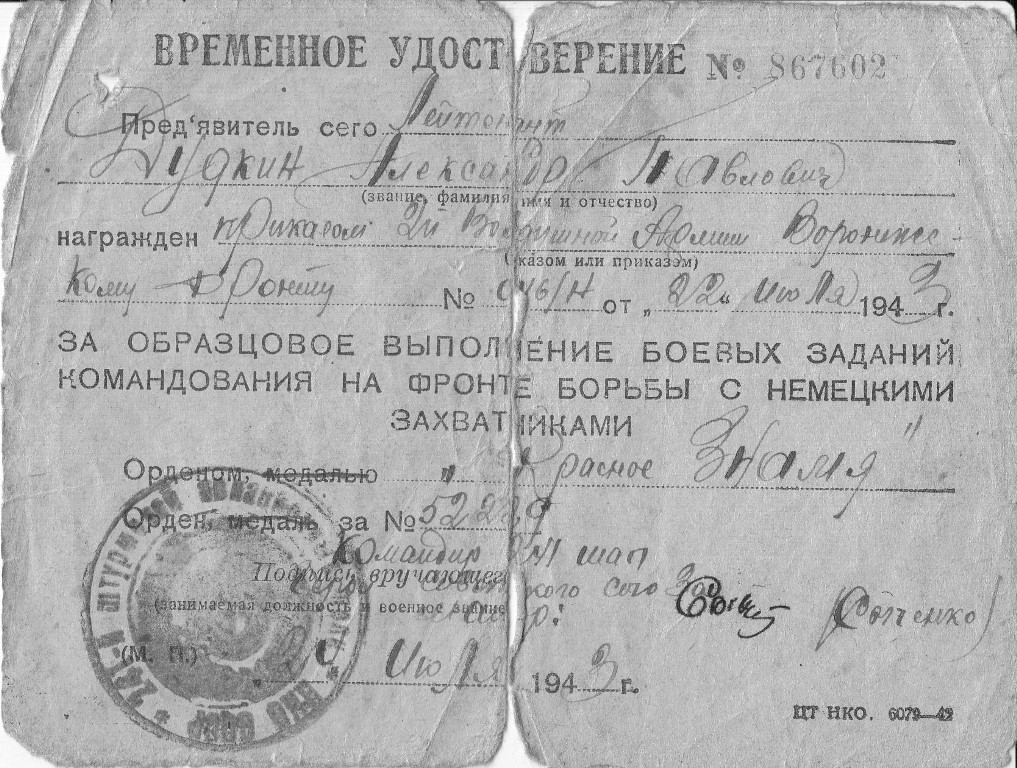 ВРЕМЕННОЕ УДОСТОВЕРЕНИЕ № 867602
Пред'явитель сего Лейтенант
Дудкин Александр Павлович
(звание, фамилия имя и отчество)
награжден приказом 2й Воздушной Армии Воронежс-
(указом или приказэм)
кому Фронту № 046/Н от „22" Июля 1943 г.
ЗА ОБРАЗЦОВОЕ ВЫПОЛНЕНИЕ БОЕВЫХ ЗАДАНИЙ
КОМАНДОВАНИЯ НА ФРОНТЕ БОРЬБЫ С НЕМЕЦКИМИ
ЗАХВАТНИКАМИ
Орденом, медалью „Красное Знамя"
Орден, медаль за № 52229
Командир 241 шап
Подпись вручающего
Советского Союза
(занимаемая должность и военное звание)
(Фотченко)
(М. П.) Июля 1943 г.
ЦТ НКО. 6079—42